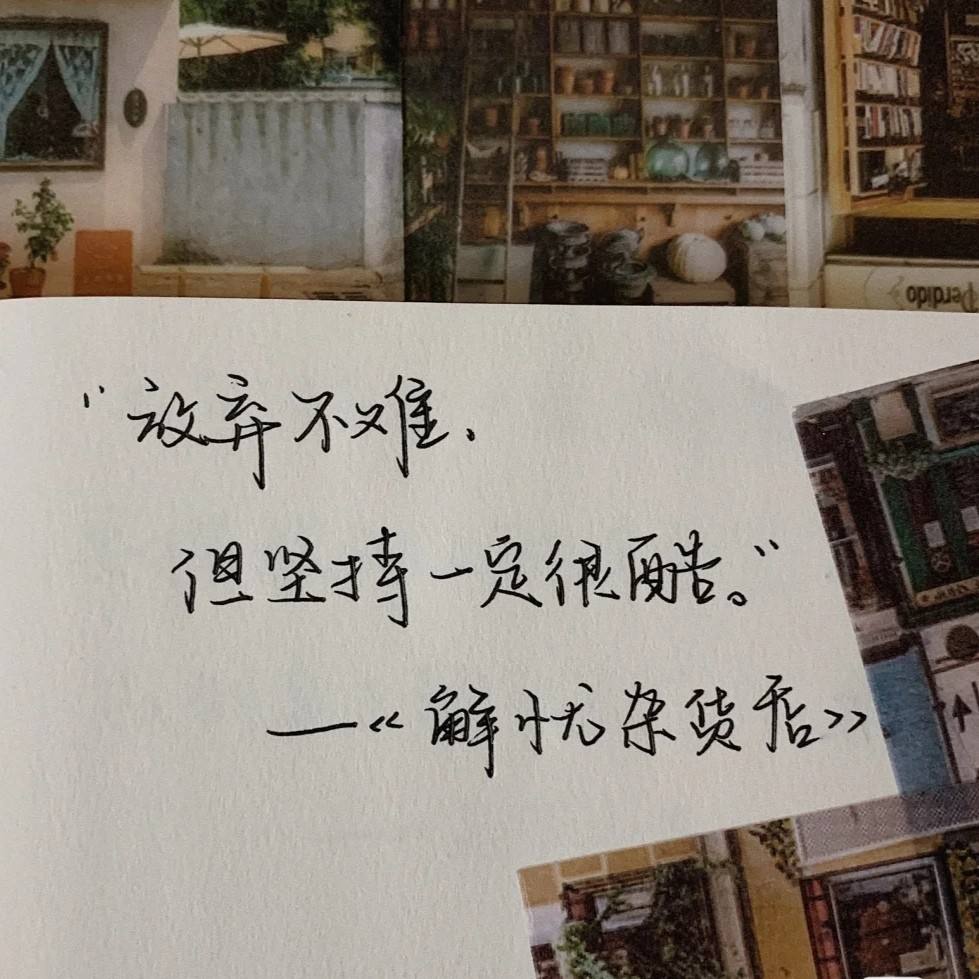 Perdido
“放弃不难，
但坚持一定很酷。”
——《解忧杂货店》